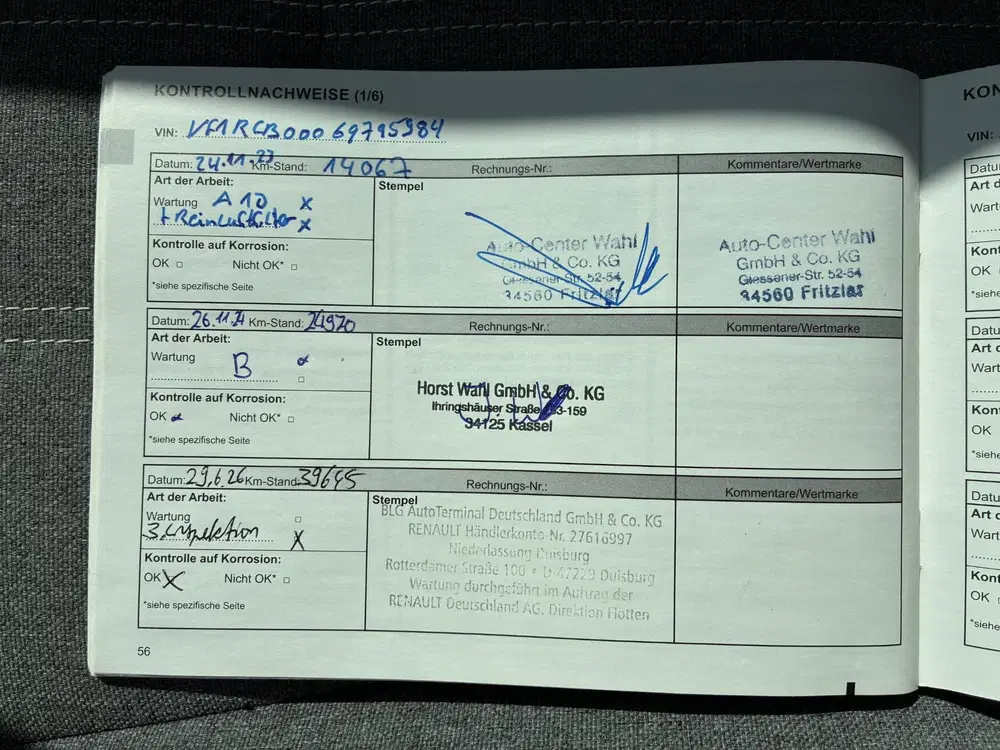 KONTROLLNACHWEISE (1/6)
VIN: VF1RCB00069795984
Datum: 24.11.23 Km-Stand: 14067 Rechnungs-Nr.: Kommentare/Wertmarke
Art der Arbeit: Stempel
Wartung A10 x
+ Reinluftfilter x
Kontrolle auf Korrosion:
OK Nicht OK*
*siehe spezifische Seite
Auto-Center Wahl
GmbH & Co. KG
Giessener-Str. 52-54
34560 Fritzlar
Auto-Center Wahl
GmbH & Co. KG
Giessener-Str. 52-54
34560 Fritzlar
Datum: 26.11.24 Km-Stand: 24970 Rechnungs-Nr.: Kommentare/Wertmarke
Art der Arbeit: Stempel
Wartung B
Kontrolle auf Korrosion:
OK Nicht OK*
*siehe spezifische Seite
Horst Wahl GmbH & Co. KG
Ihringshäuser Straße
34125 Kassel
Datum: 29.6.26 Km-Stand: 39645 Rechnungs-Nr.: Kommentare/Wertmarke
Art der Arbeit: Stempel
Wartung
3. Inspektion X
Kontrolle auf Korrosion:
OK X Nicht OK*
*siehe spezifische Seite
BLG AutoTerminal Deutschland GmbH & Co. KG
RENAULT Händlerkonto-Nr. 27616997
Niederlassung Duisburg
Rotterdamer Straße 100 * D-47229 Duisburg
Wartung durchgeführt im Auftrag der
RENAULT Deutschland AG, Direktion Flotten
56
KON
VIN:
Datu
Art d
Wart
Kont
OK
*siehe
Datu
Art d
Wart
Kon
OK
*siehe
Datu
Art d
Wart
Kont
OK
*siehe